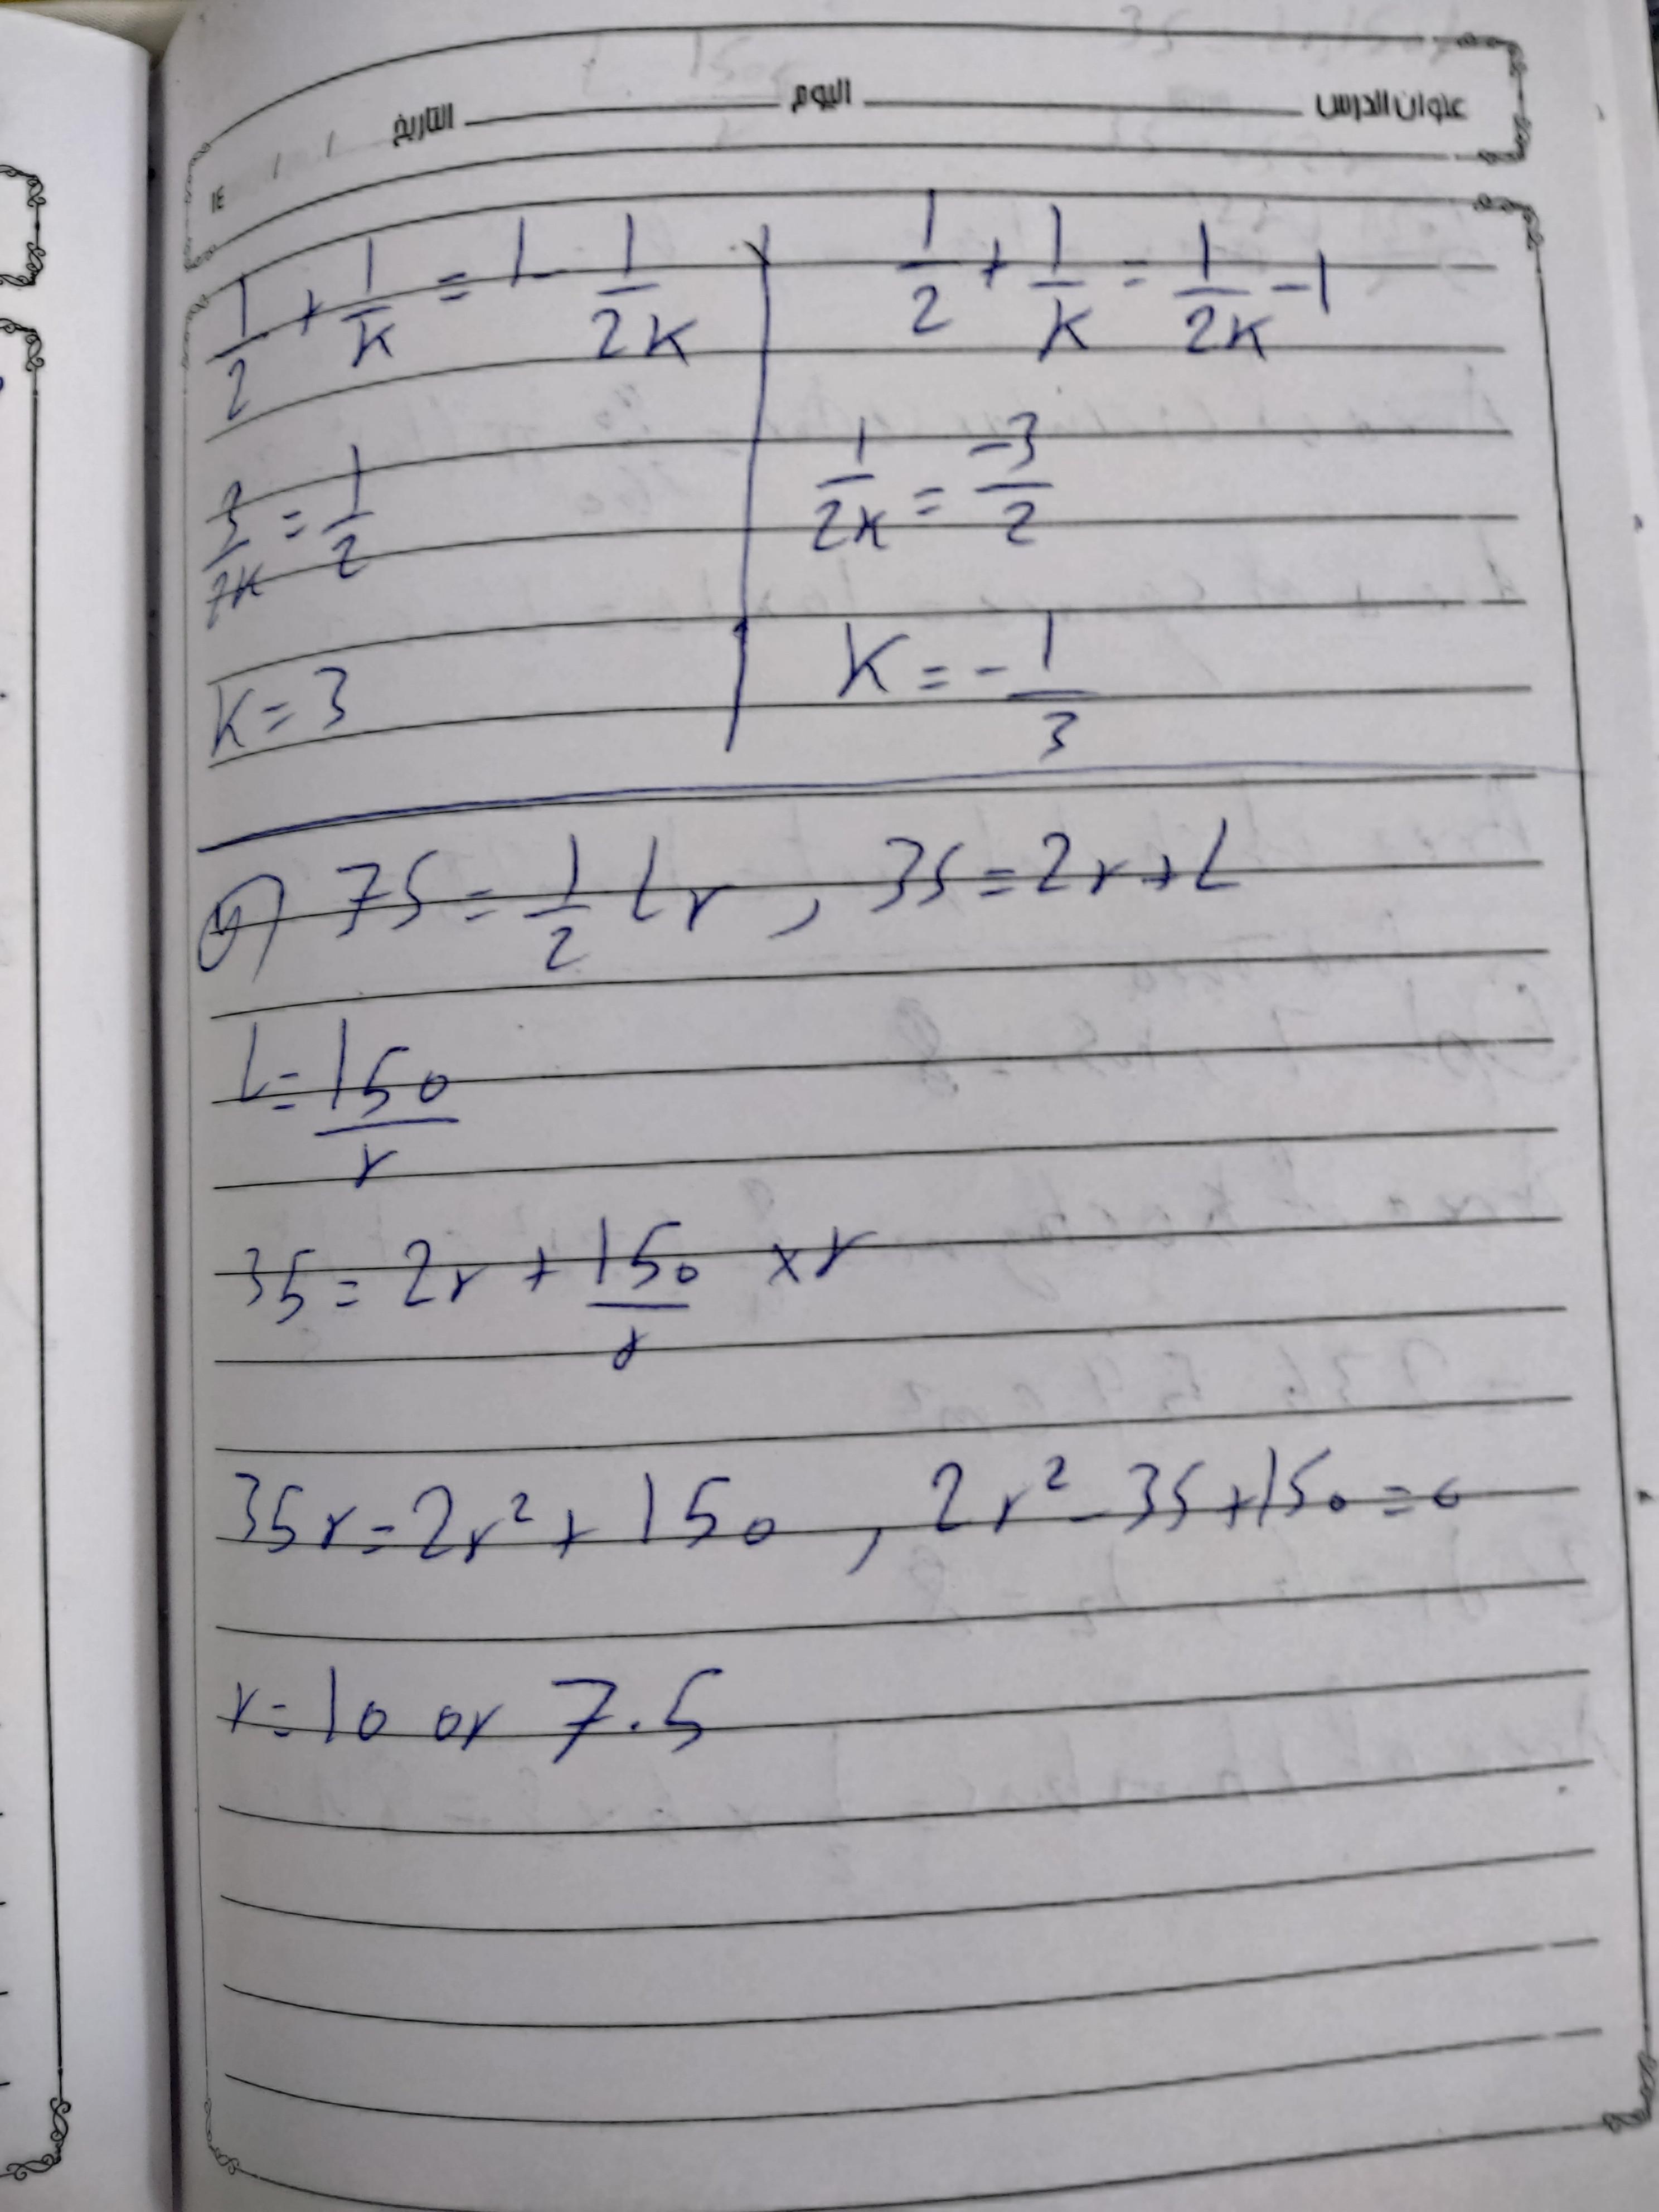 عنوان الدرس اليوم التاريخ / /
١٤
1/2 + 1/K = 1 - 1/2K
3/2K = 1/2
K = 3
1/2 + 1/K = 1/2K - 1
1/2K = -3/2
K = -1/3
75 = 1/2 Lr , 35 = 2r + L
L = 150/r
35 = 2r + 150/r × r
35r = 2r² + 150 , 2r² - 35 + 150 = 0
r = 10 or 7.5